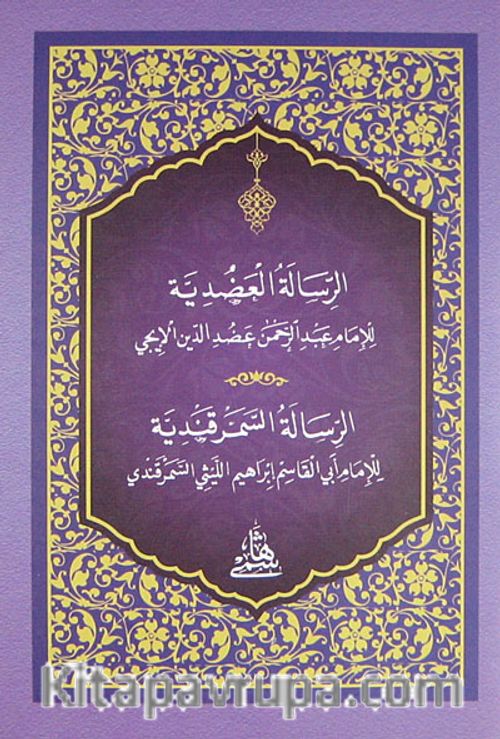 الرِّسَالَةُ الْعَضُدِيَّة
لِلْإِمَامِ عَبْدِ الرَّحْمٰنِ عَضُدِ الدِّينِ الْإِيجِي
الرِّسَالَةُ السَّمَرْقَنْدِيَّة
لِلْإِمَامِ أَبِي الْقَاسِمِ إِبْرَاهِيمَ اللَّيْثِيِّ السَّمَرْقَنْدِي
هاشمي
kitapavrupa.com